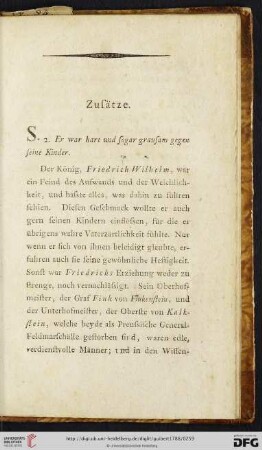 Zusätze.
S. 2. Er war hart und sogar grausam gegen
seine Kinder.
Der König, Friedrich Wilhelm, war
ein Feind des Aufwands und der Weichlich-
keit, und haßte alles, was dahin zu führen
schien. Diesen Geschmack wollte er auch
gern seinen Kindern einflössen, für die er
übrigens wahre Vaterzärtlichkeit fühlte. Nur
wenn er sich von ihnen beleidigt glaubte, er-
fuhren auch sie seine gewöhnliche Heftigkeit.
Sonst war Friedrichs Erziehung weder zu
strenge, noch vernachläßigt. Sein Oberhof-
meister, der Graf Fink von Finkenstein, und
der Unterhofmeister, der Oberste von Kalk-
stein, welche beyde als Preußische General-
Feldmarschälle gestorben sind, waren edle,
verdienstvolle Männer; und in den Wissen-
http://digi.ub.uni-heidelberg.de/diglit/guibert1788/0293
© Universitätsbibliothek Heidelberg
gefördert durch die
DFG